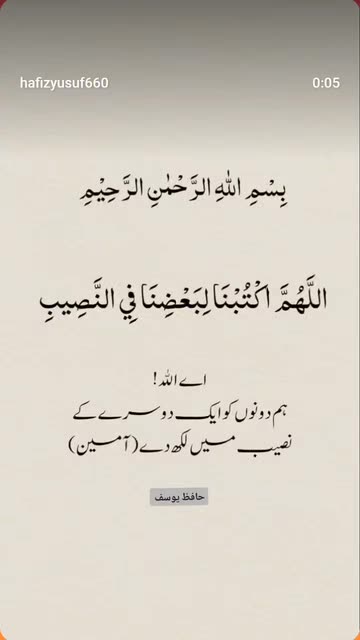 hafizyusuf660 0:05
بِسْمِ اللهِ الرَّحْمٰنِ الرَّحِيْمِ
اللَّهُمَّ اكْتُبْنَا لِبَعْضِنَا فِي النَّصِيبِ
اے اللہ!
ہم دونوں کو ایک دوسرے کے
نصیب میں لکھ دے (آمین)
حافظ یوسف